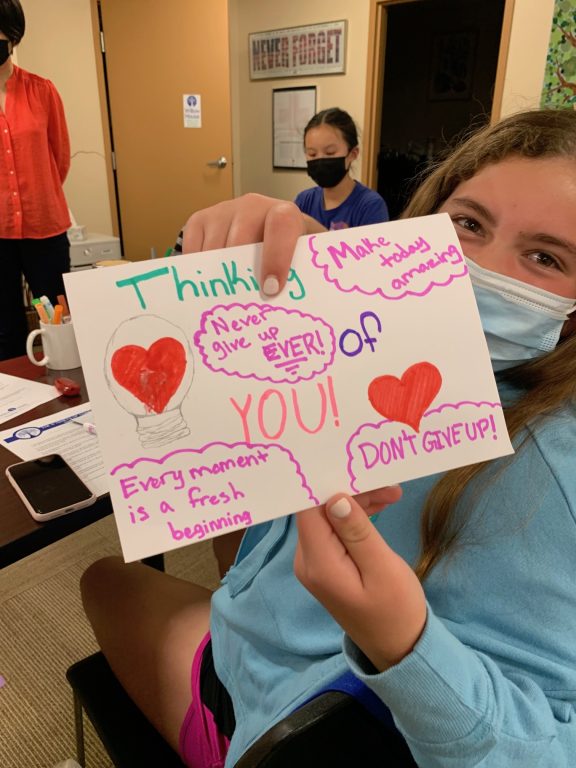 NEVER FORGET
Thinking
of
YOU!
Make today
amazing
Never
give up
EVER!
DON'T GIVE UP!
Every mament
is a fresh
beginning